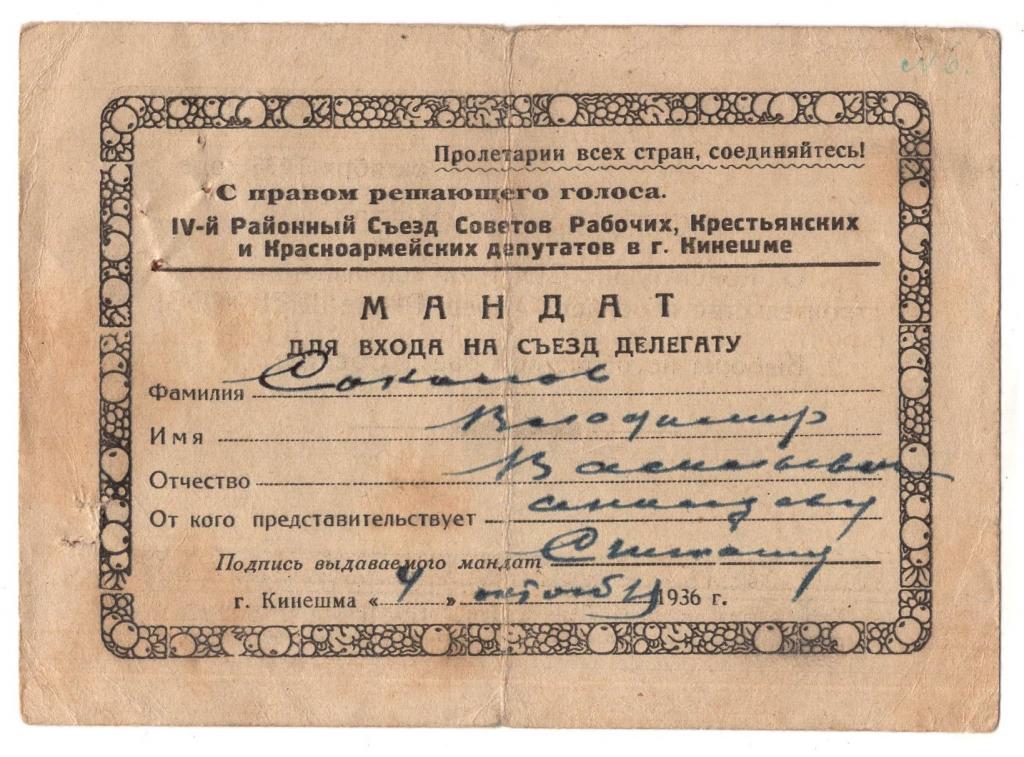 N 6.
Пролетарии всех стран, соединяйтесь!
С правом решающего голоса.
IV-й Районный Съезд Советов Рабочих, Крестьянских
и Красноармейских депутатов в г. Кинешме
МАНДАТ
ДЛЯ ВХОДА НА СЪЕЗД ДЕЛЕГАТУ
Фамилия Соколов
Имя Владимир
Отчество Васильевич
От кого представительствует
Подпись выдаваемого мандат
г. Кинешма « 4 » октября 1936 г.